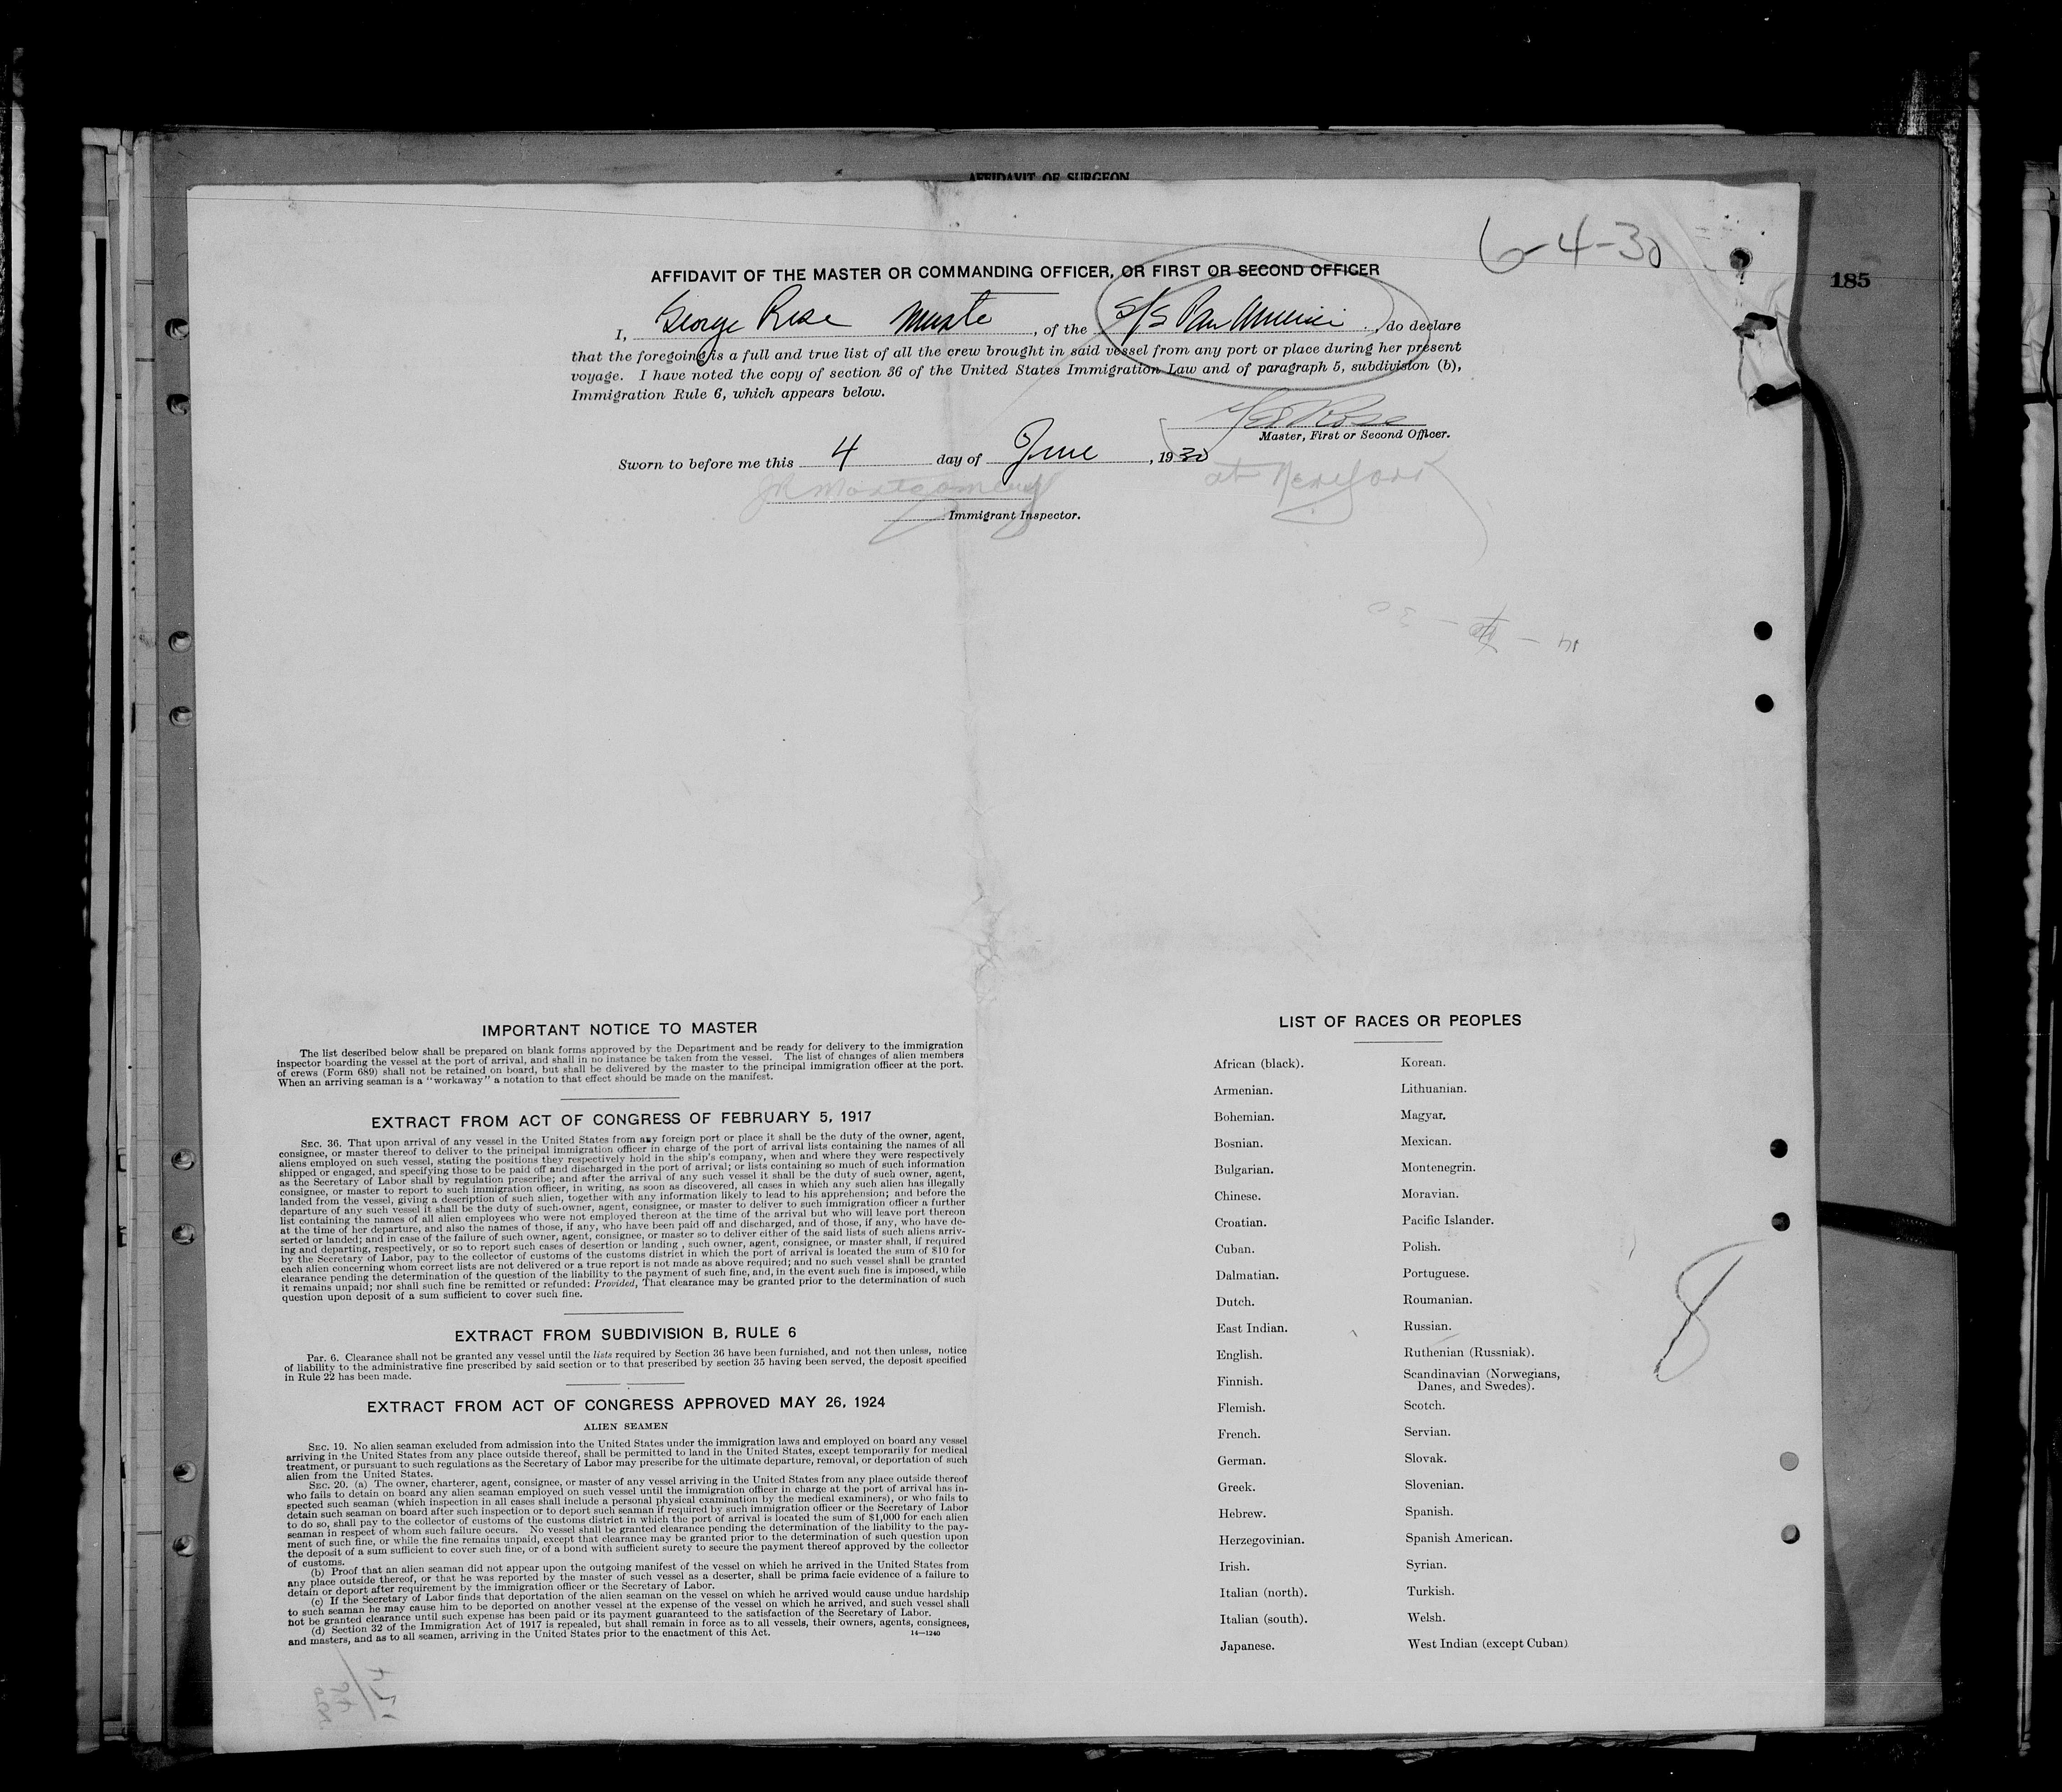 AFFIDAVIT OF SURGEON
6-4-30
185
AFFIDAVIT OF THE MASTER OR COMMANDING OFFICER, OR FIRST OR SECOND OFFICER
I, George Rose Master, of the S/S Pan America, do declare
that the foregoing is a full and true list of all the crew brought in said vessel from any port or place during her present
voyage. I have noted the copy of section 36 of the United States Immigration Law and of paragraph 5, subdivision (b),
Immigration Rule 6, which appears below.
Geo Rose
Master, First or Second Officer.
Sworn to before me this 4 day of June, 1930
at New York
JR Montgomery
Immigrant Inspector.
IMPORTANT NOTICE TO MASTER
The list described below shall be prepared on blank forms approved by the Department and be ready for delivery to the immigration
inspector boarding the vessel at the port of arrival, and shall in no instance be taken from the vessel. The list of changes of alien members
of crews (Form 689) shall not be retained on board, but shall be delivered by the master to the principal immigration officer at the port.
When an arriving seaman is a "workaway" a notation to that effect should be made on the manifest.
EXTRACT FROM ACT OF CONGRESS OF FEBRUARY 5, 1917
SEC. 36. That upon arrival of any vessel in the United States from any foreign port or place it shall be the duty of the owner, agent,
consignee, or master thereof to deliver to the principal immigration officer in charge of the port of arrival lists containing the names of all
aliens employed on such vessel, stating the positions they respectively hold in the ship's company, when and where they were respectively
shipped or engaged, and specifying those to be paid off and discharged in the port of arrival; or lists containing so much of such information
as the Secretary of Labor shall by regulation prescribe; and after the arrival of any such vessel it shall be the duty of such owner, agent,
consignee, or master to report to such immigration officer, in writing, as soon as discovered, all cases in which any such alien has illegally
landed from the vessel, giving a description of such alien, together with any information likely to lead to his apprehension; and before the
departure of any such vessel it shall be the duty of such owner, agent, consignee, or master to deliver to such immigration officer a further
list containing the names of all alien employees who were not employed thereon at the time of the arrival but who will leave port thereon
at the time of her departure, and also the names of those, if any, who have been paid off and discharged, and of those, if any, who have de-
serted or landed; and in case of the failure of such owner, agent, consignee, or master so to deliver either of the said lists of such aliens arriv-
ing and departing, respectively, or so to report such cases of desertion or landing, such owner, agent, consignee, or master shall, if required
by the Secretary of Labor, pay to the collector of customs of the customs district in which the port of arrival is located the sum of $10 for
each alien concerning whom correct lists are not delivered or a true report is not made as above required; and no such vessel shall be granted
clearance pending the determination of the question of the liability to the payment of such fine, and, in the event such fine is imposed, while
it remains unpaid; nor shall such fine be remitted or refunded: Provided, That clearance may be granted prior to the determination of such
question upon deposit of a sum sufficient to cover such fine.
EXTRACT FROM SUBDIVISION B, RULE 6
PAR. 6. Clearance shall not be granted any vessel until the lists required by Section 36 have been furnished, and not then unless, notice
of liability to the administrative fine prescribed by said section or to that prescribed by section 35 having been served, the deposit specified
in Rule 22 has been made.
EXTRACT FROM ACT OF CONGRESS APPROVED MAY 26, 1924
ALIEN SEAMEN
SEC. 19. No alien seaman excluded from admission into the United States under the immigration laws and employed on board any vessel
arriving in the United States from any place outside thereof, shall be permitted to land in the United States, except temporarily for medical
treatment, or pursuant to such regulations as the Secretary of Labor may prescribe for the ultimate departure, removal, or deportation of such
alien from the United States.
SEC. 20. (a) The owner, charterer, agent, consignee, or master of any vessel arriving in the United States from any place outside thereof
who fails to detain on board any alien seaman employed on such vessel until the immigration officer in charge at the port of arrival has in-
spected such seaman (which inspection in all cases shall include a personal physical examination by the medical examiners), or who fails to
detain such seaman on board after such inspection or to deport such seaman if required by such immigration officer or the Secretary of Labor
to do so, shall pay to the collector of customs of the customs district in which the port of arrival is located the sum of $1,000 for each alien
seaman in respect of whom such failure occurs. No vessel shall be granted clearance pending the determination of the liability to the pay-
ment of such fine, or while the fine remains unpaid, except that clearance may be granted prior to the determination of such question upon
the deposit of a sum sufficient to cover such fine, or of a bond with sufficient surety to secure the payment thereof approved by the collector
of customs.
(b) Proof that an alien seaman did not appear upon the outgoing manifest of the vessel on which he arrived in the United States from
any place outside thereof, or that he was reported by the master of such vessel as a deserter, shall be prima facie evidence of a failure to
detain or deport after requirement by the immigration officer or the Secretary of Labor.
(c) If the Secretary of Labor finds that deportation of the alien seaman on the vessel on which he arrived would cause undue hardship
to such seaman he may cause him to be deported on another vessel at the expense of the vessel on which he arrived, and such vessel shall
not be granted clearance until such expense has been paid or its payment guaranteed to the satisfaction of the Secretary of Labor.
(d) Section 32 of the Immigration Act of 1917 is repealed, but shall remain in force as to all vessels, their owners, agents, consignees,
and masters, and as to all seamen, arriving in the United States prior to the enactment of this Act.
14—1240
LIST OF RACES OR PEOPLES
African (black).
Armenian.
Bohemian.
Bosnian.
Bulgarian.
Chinese.
Croatian.
Cuban.
Dalmatian.
Dutch.
East Indian.
English.
Finnish.
Flemish.
French.
German.
Greek.
Hebrew.
Herzegovinian.
Irish.
Italian (north).
Italian (south).
Japanese.
Korean.
Lithuanian.
Magyar.
Mexican.
Montenegrin.
Moravian.
Pacific Islander.
Polish.
Portuguese.
Roumanian.
Russian.
Ruthenian (Russniak).
Scandinavian (Norwegians,
Danes, and Swedes).
Scotch.
Servian.
Slovak.
Slovenian.
Spanish.
Spanish American.
Syrian.
Turkish.
Welsh.
West Indian (except Cuban)
8